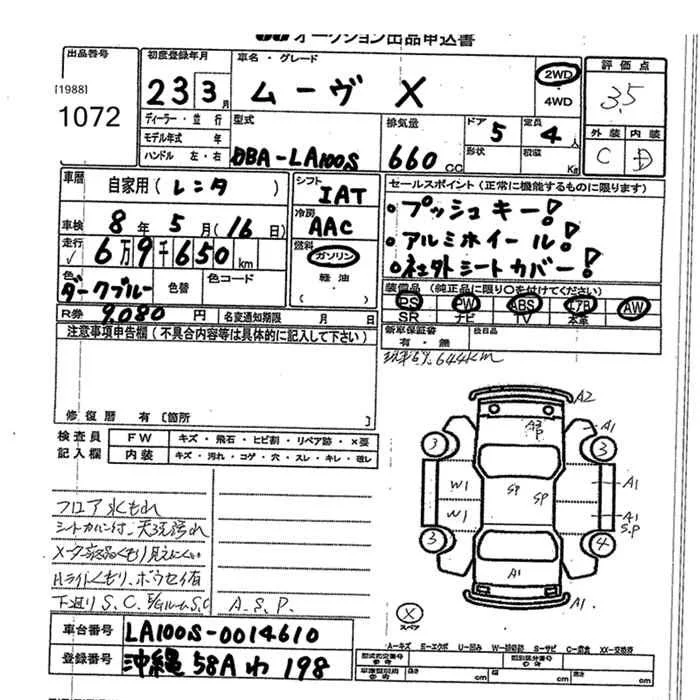 オークション出品申込書
出品番号
[1988]
1072
初度登録年月
23 3月
車名・グレード
ムーヴ X
2WD
4WD
評価点
3.5
外装 内装
C D
ディーラー・並行
モデル年式 年
ハンドル 左・右
型式
DBA-LA100S
排気量
660cc
ドア 5
形状
定員 4人
積載 Kg
車歴
自家用(レンタ)
シフト
IAT
冷房
AAC
燃料
ガソリン
軽油
( )
セールスポイント(正常に機能するものに限ります)
・プッシュキー!
・アルミホイール!
・社外シートカバー!
車検 8年 5月(16日)
走行 6万9千650km
色 ダークブルー
色替
色コード
R券 9,080円
名変通知期限 月 日
装備品(純正品に限り○を付けてください)
PS PW ABS エアB AW
SR ナビ TV 本革
新車保証書
有・無
欠品目
現車69,644km
注意事項申告欄(不具合内容等は具体的に記入して下さい)
修復歴 有〔箇所 〕
検査員
記入欄
FW キズ・飛石・ヒビ割・リペア跡・×要
内装 キズ・汚れ・コゲ・穴・スレ・キレ・破レ
フロア水もれ
シートカバー付、天張汚れ
メーター液晶くもり見えにくい
Hライトくもり、ボウセイ有
下廻りS.C. E/GルームS.C
A.S.P.
A2
A1
A3
P
3
3
W1
SP
SP
A1
W1
A1
S.P
3
4
A1
A1
X
スペア
A-キズ E-エクボ U-凹み W-補修跡 S-サビ C-腐食 XX-交換済
車台番号 LA100S-0014610
登録番号 沖縄 58A わ 198
型式指定番号
類別区分番号
長さ cm 幅 cm 高さ cm